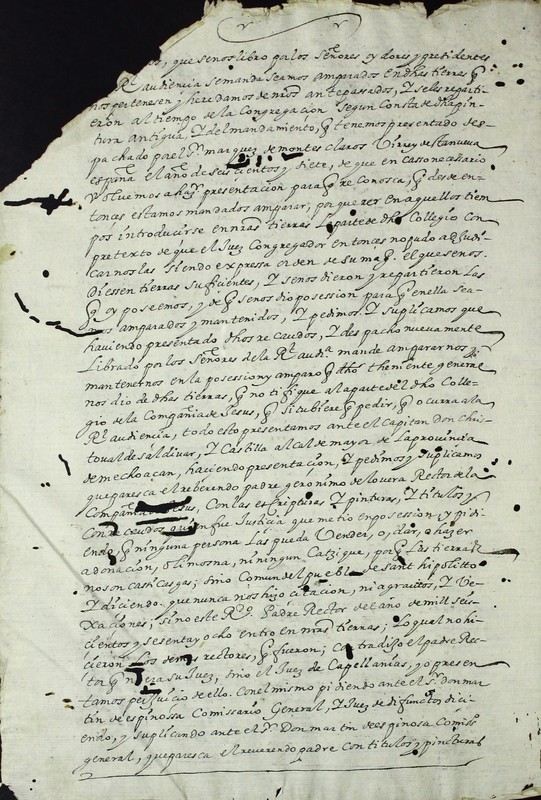 que se nos libro por los Señores oydores y presidentes
Rl audiencia se manda seamos amparados en dhas tierras q̃
nos pertenesen y heredamos de nrõs antepassados, Y se les reparti-
eron al tiempo de la Congregacion segun Consta de dha pin-
tura antigua, Y del mandamiento, q̃ tenemos presentado des-
pachado por el sr marquez de montes claros Virrey de
españa el año de seiscientos y siete, de que en caso necesario
Volvemos a haser presentacion para q̃ re Conosca, q̃ desde en-
tonces estamos mandados amparar, por que res en aquellos tiem
pos introducirse en nrãs tierras la parte de dho Collegio con
pretexto de que el Juez Congregador entonces no pudo adjudi-
carnos las siendo expressa orden de su mag. el que se nos
diessen tierras suficientes, Y se nos dieron y repartieron las
q̃ oy poseemos, y de q̃ se nos dio possesion para q̃ en ella sea-
mos amparados y mantenidos, Y pedimos. Y suplicamos que
haviendo presentado dhos recaudos, Y despacho nuevamente
Librado por los Señores de la Rl audia mande ampararnos y
mantenernos en la possesion y amparo q̃ dho theniente general
nos dio de dhas tierras, q̃ notifique a la parte del dho Colle-
gio de la Compañia de Jesus, q̃ si tubiere q̃ pedir, q̃ ocurra a la
Rl audiencia, todo esto presentamos ante el Capitan Don Chris-
toval de saldivar, Y Castilla alcalde mayor de la provincia
de mechoacan, haciendo presentacion, Y pedimos y suplicamos
que paresca el reberendo padre geronimo de lovera Rector de la
Compañia de Jesus, Con las escripturas Y pinturas, Y titulos y
Con recaudos quien fue Justicia que metio en possesion, y pidi-
endo q̃ ninguna persona las pueda Vender, o, dar, a haser
adonacion, o limosna, ni ningun Cazique, por q̃ las tierras
no son casicasgas; sino Comun del pueblo de sant hipolitto
Y diciendo. que nunca nos hizo citacion, ni agravios, Y Ve-
xaciones; sino este Rdo Padre Rector del año de mill seis-
cientos y sesenta y ocho entro en nrãs tierras; lo qual no hi-
cieron los demas rectores, q̃ fueron; Contradijo el padre Rec-
tor q̃ no era su Juez, sino el Juez de Capellanias, yo presen
tamos perjuicio de ello. Con el mismo pidiendo ante el Sr Don mar
tin de espinossa Comissario General, Y Juez de difunctos dici-
endo, y suplicando ante el Sr Don martin de espinosa Comiss.
general, que paresca el reverendo padre con titulos y pinturas